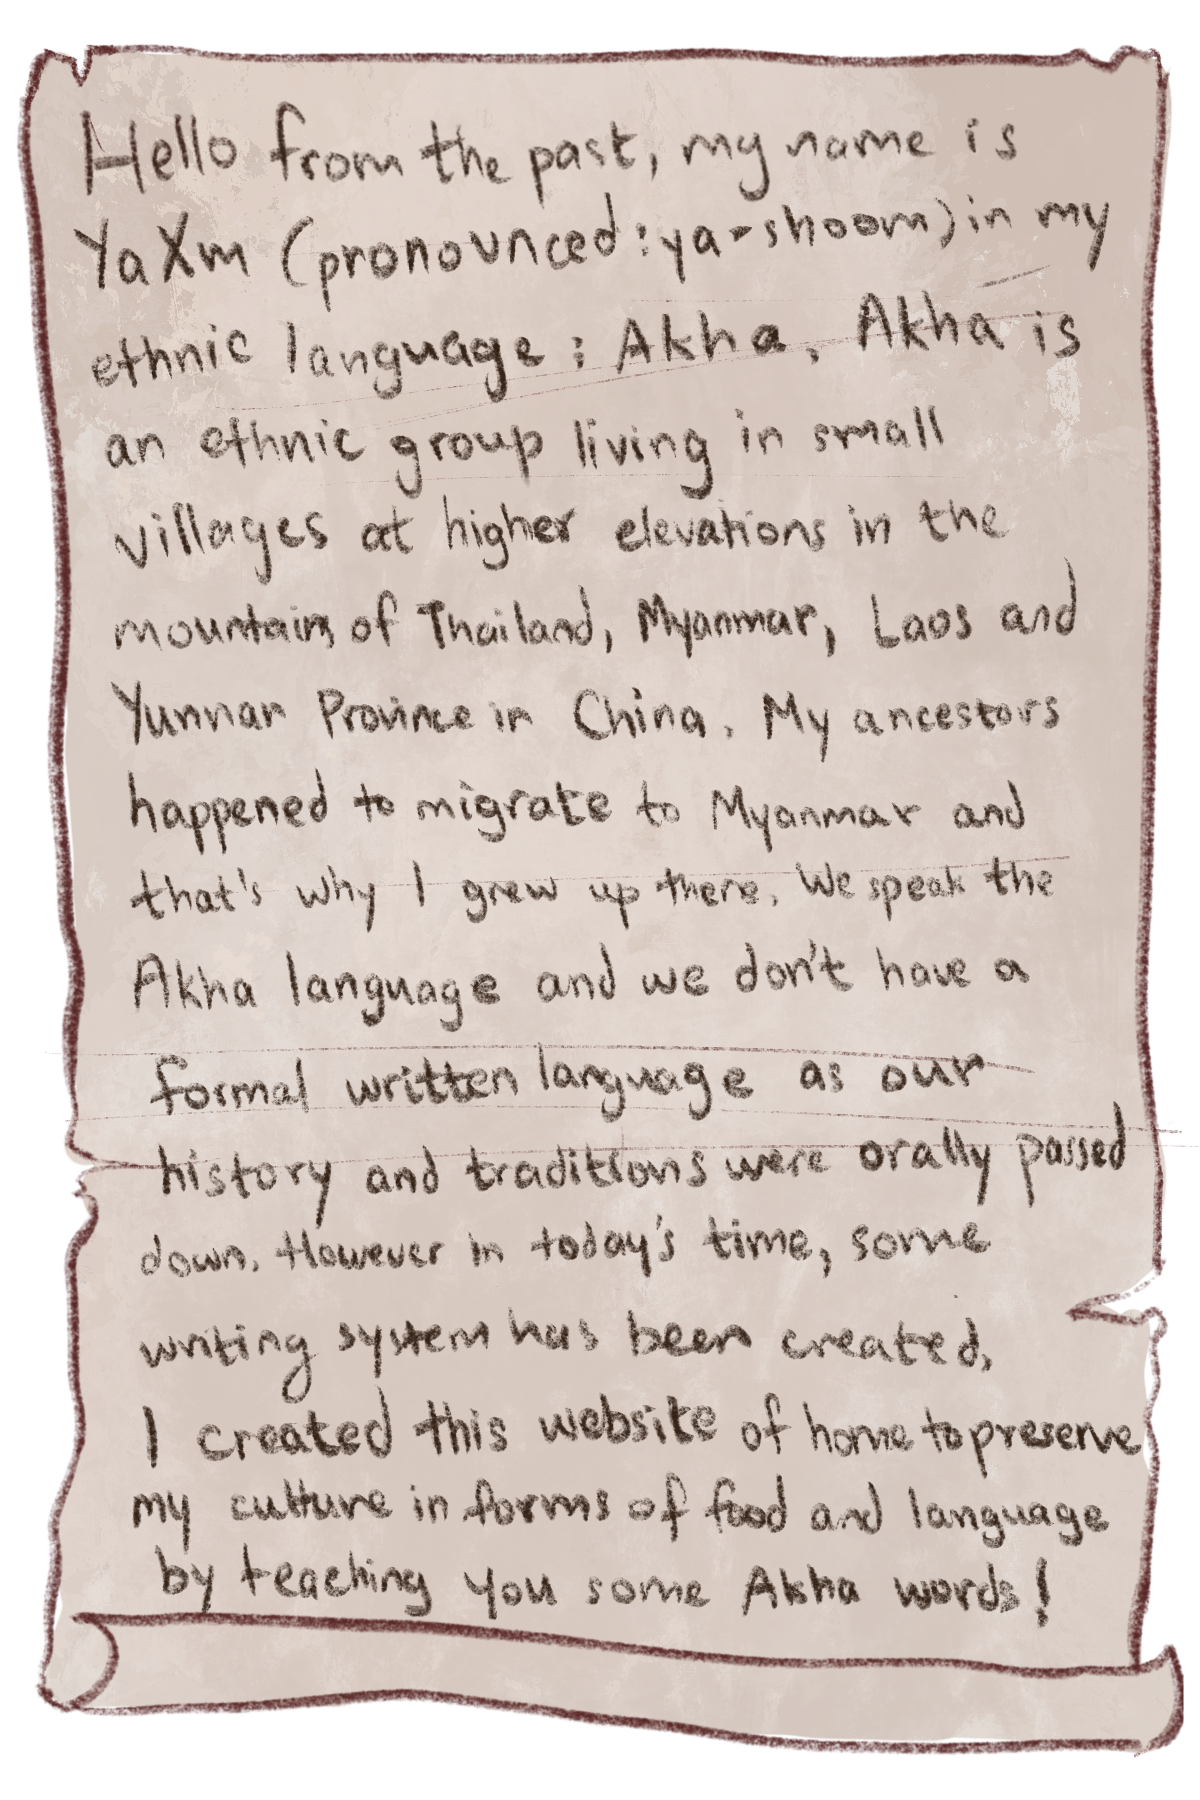 Hello from the past, my name is
YaXm (pronounced: ya-shoom) in my
ethnic language : Akha. Akha is
an ethnic group living in small
villages at higher elevations in the
mountains of Thailand, Myanmar, Laos and
Yunnan Province in China. My ancestors
happened to migrate to Myanmar and
that's why I grew up there. We speak the
Akha language and we don't have a
formal written language as our
history and traditions were orally passed
down. However in today's time, some
writing system has been created.
I created this website of home to preserve
my culture in forms of food and language
by teaching you some Akha words!